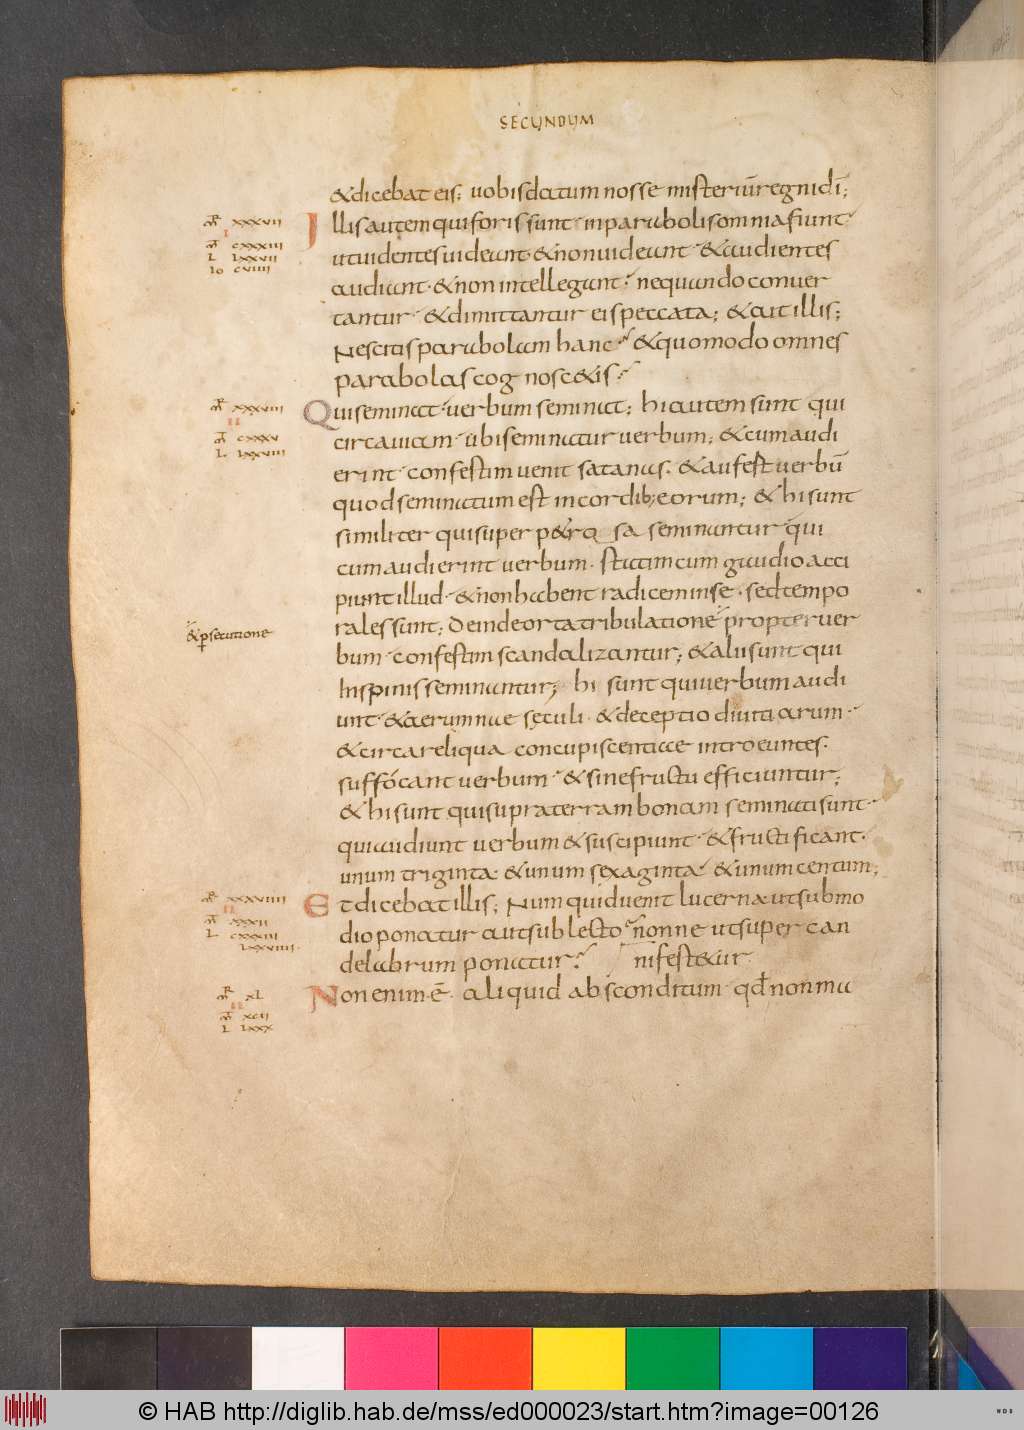 SECUNDUM
&dicebat eis; uobisdatum nosse misteriū regnidī;
Illisautem quiforissunt inparabolisomniafiunt
utuidentesuideant·&nonuideant·&audientes
audiant·&non intellegant· nequando conuer
tantur·&dimittantur eispeccata; &ait illis;
Nescitisparabolam hanc· &quomodo omnes
parabolascognosc&is·
Quiseminat·uerbumseminat; hiautem sunt qui
circauiam·ubiseminatur uerbum; &cumaudi
erint·confestim uenit satanas·&aufestuerbū
quodseminatum est incordib;eorum; &hisunt
similiter quisuper p&rosa seminantur qui
cumaudierint uerbum·statimcum gaudioacci
piuntillud·&nonhabent radiceminse·sedtempo
ralessunt; deindeortatribulatione propteruer
bum·confestimscandalizantur; &aliisunt qui
Inspinisseminantur; hi sunt quiuerbumaudi
unt·&aerumnae sęculi·&deceptio diuitiarum·
&circareliqua concupiscentiae introeuntes·
suffocant uerbum·&sinefructu efficiuntur;
&hisunt quisupraterrambonam seminatisunt·
quiaudiunt uerbum&suscipiunt·&fructificant·
unum triginta·&unum sexaginta·&unumcentum;
Et dicebat illis; Numquiduenit lucerna utsubmo
dioponatur autsublecto nonne utsuper can
delabrum ponatur· nifest&ur
Nonenim·ē· aliquid absconditum qđnonma
XXXVII
I
CXXXIII
L LXXVII
Io CVIIII
XXXVIII
II
CXXXV
L LXXVIII
&psecutione
XXXVIIII
II
XXXII
L CXXXIII
LXXVIIII·
XL
II
XCII
L LXXX
© HAB http://diglib.hab.de/mss/ed000023/start.htm?image=00126